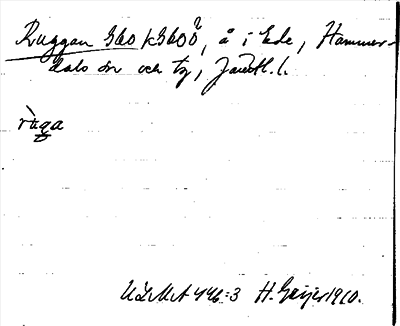 Ruggan Gbo kGboö?, å i Ede, Hammer-
dals sn och tg, Jämtl. l.
rùga
ULMA 446:3 H. Geijer 1910.